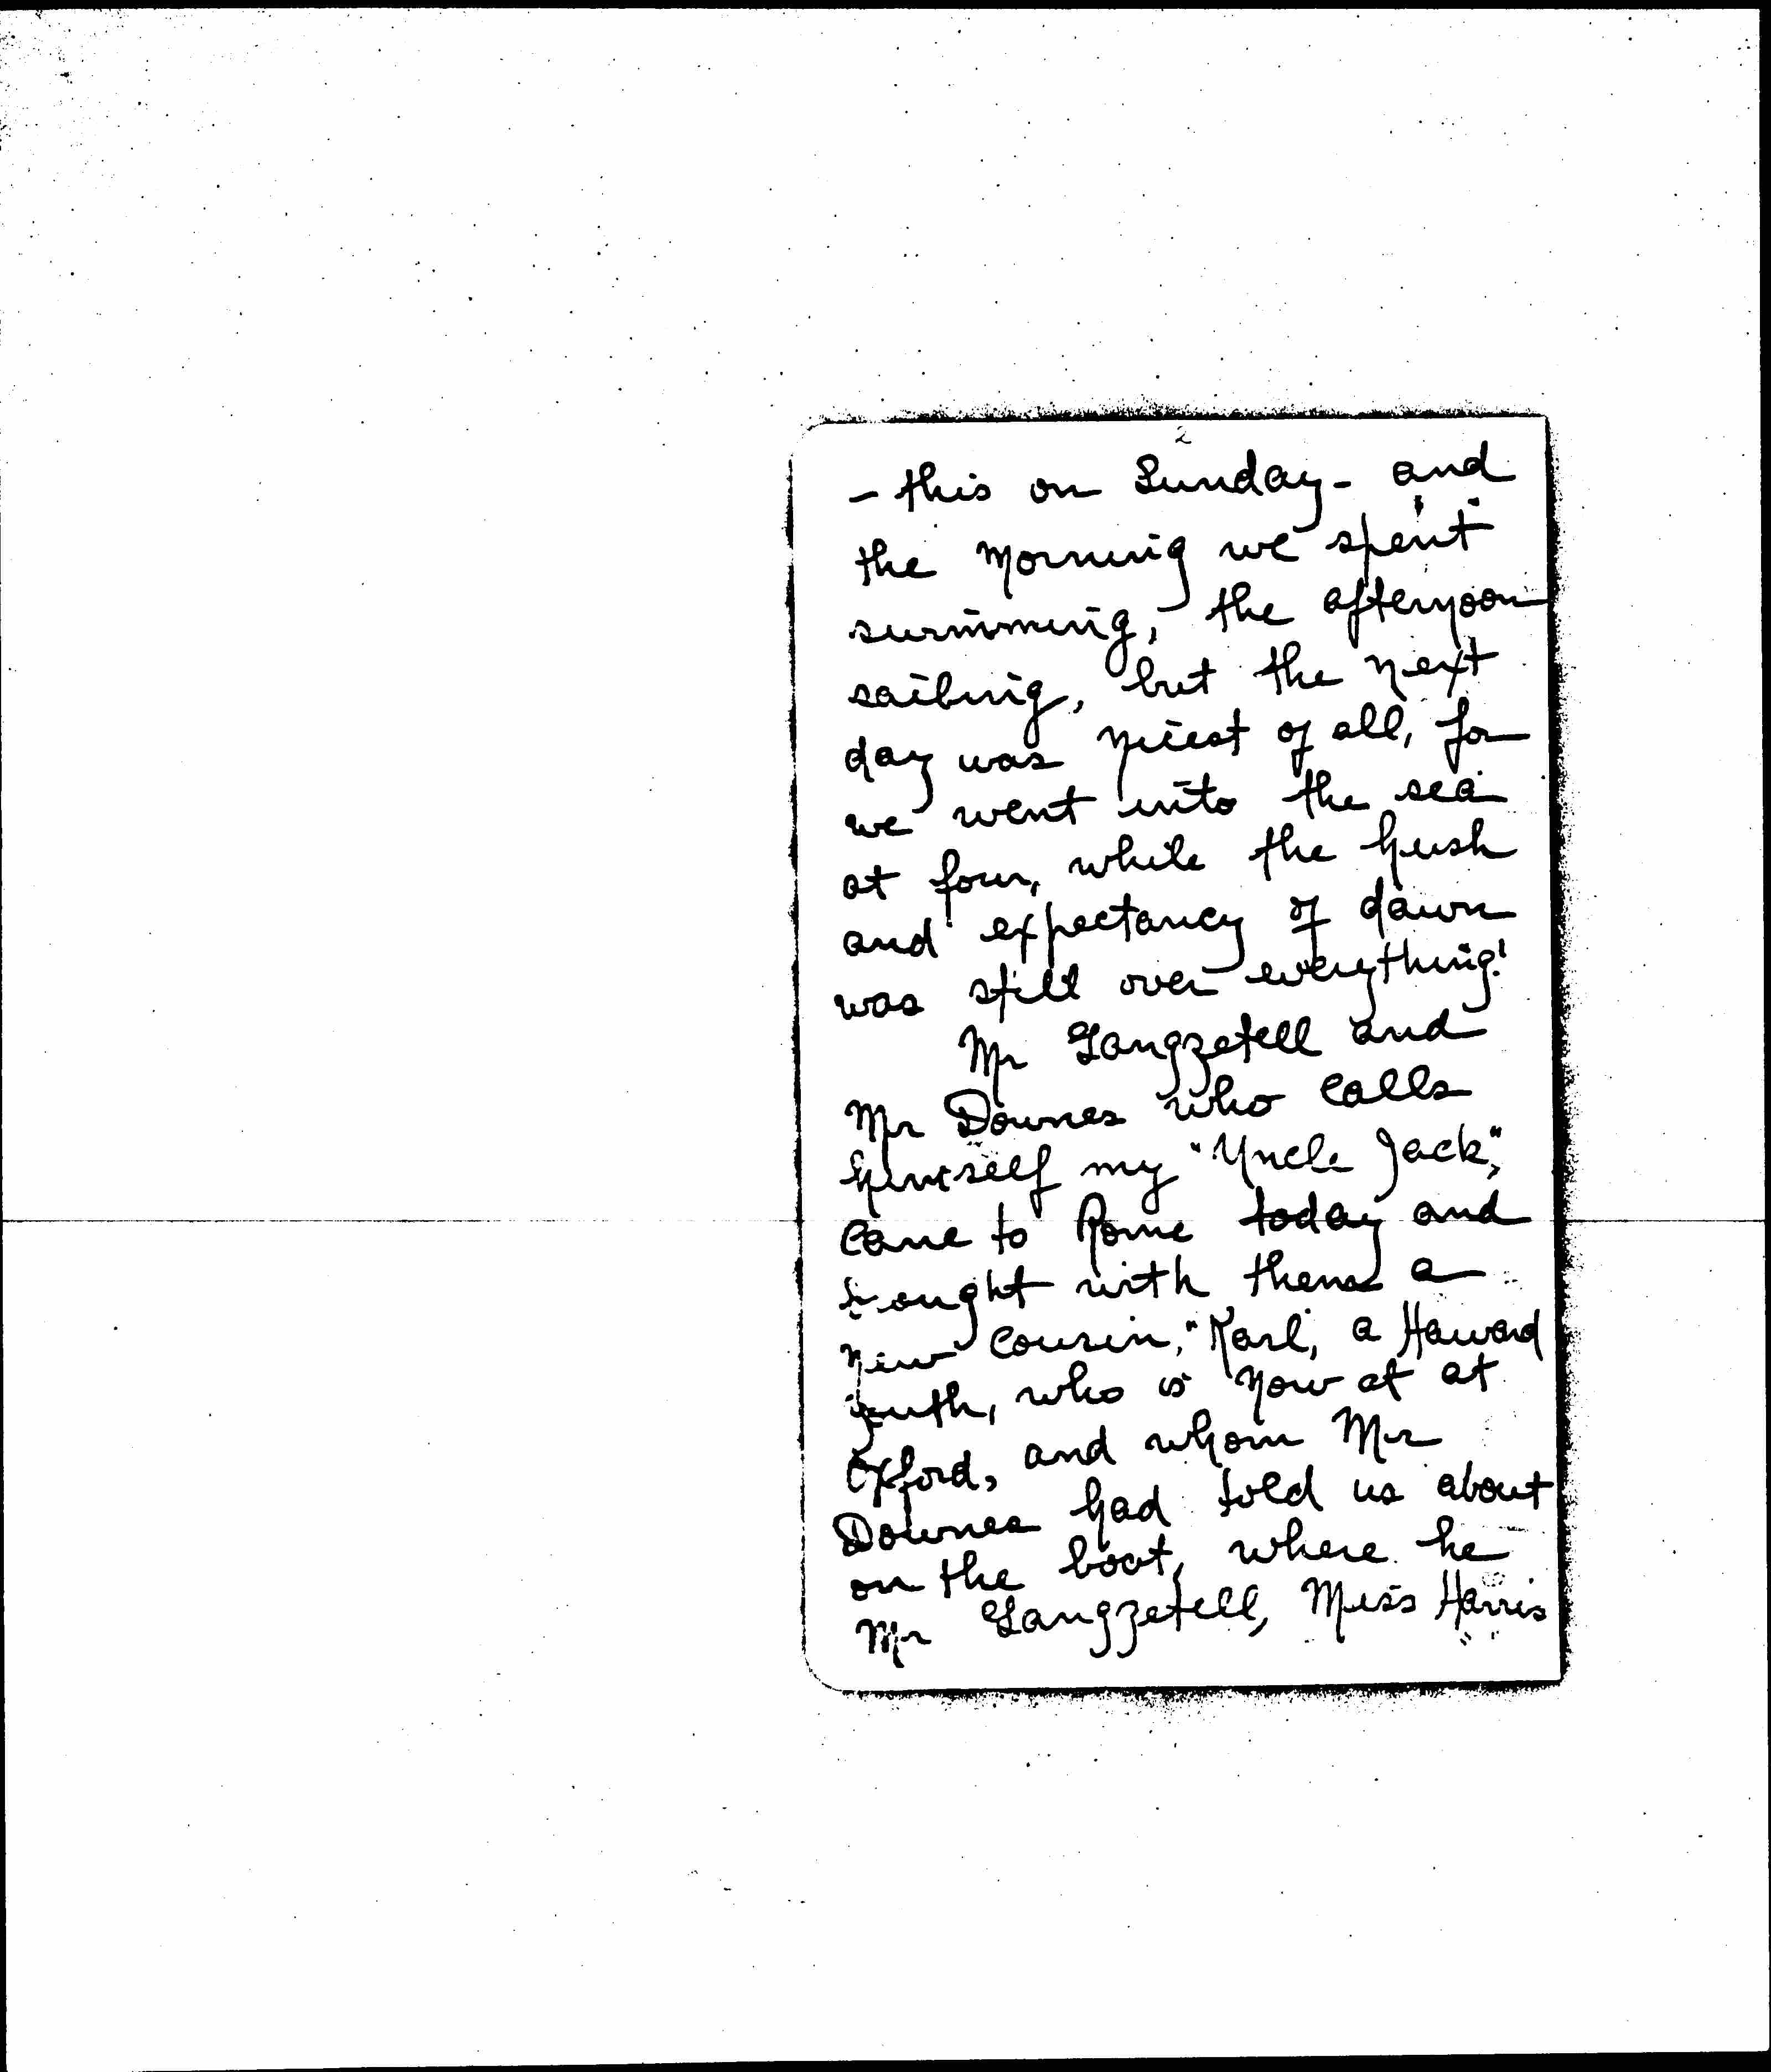 2
- this on Sunday - and
the morning we spent
swimming, the afternoon
sailing, but the next
day was nicest of all, for
we went into the sea
at four, while the hush
and expectancy of dawn
was still over everything!
Mr Langzetell and
Mr Downes who calls
himself my "Uncle Jack",
came to Rome today and
brought with them a
new cousin, "Karl", a Harvard
youth, who is now at at
Oxford, and whom Mr
Downes had told us about
on the boat, where he
Mr Langzetell, Miss Harris